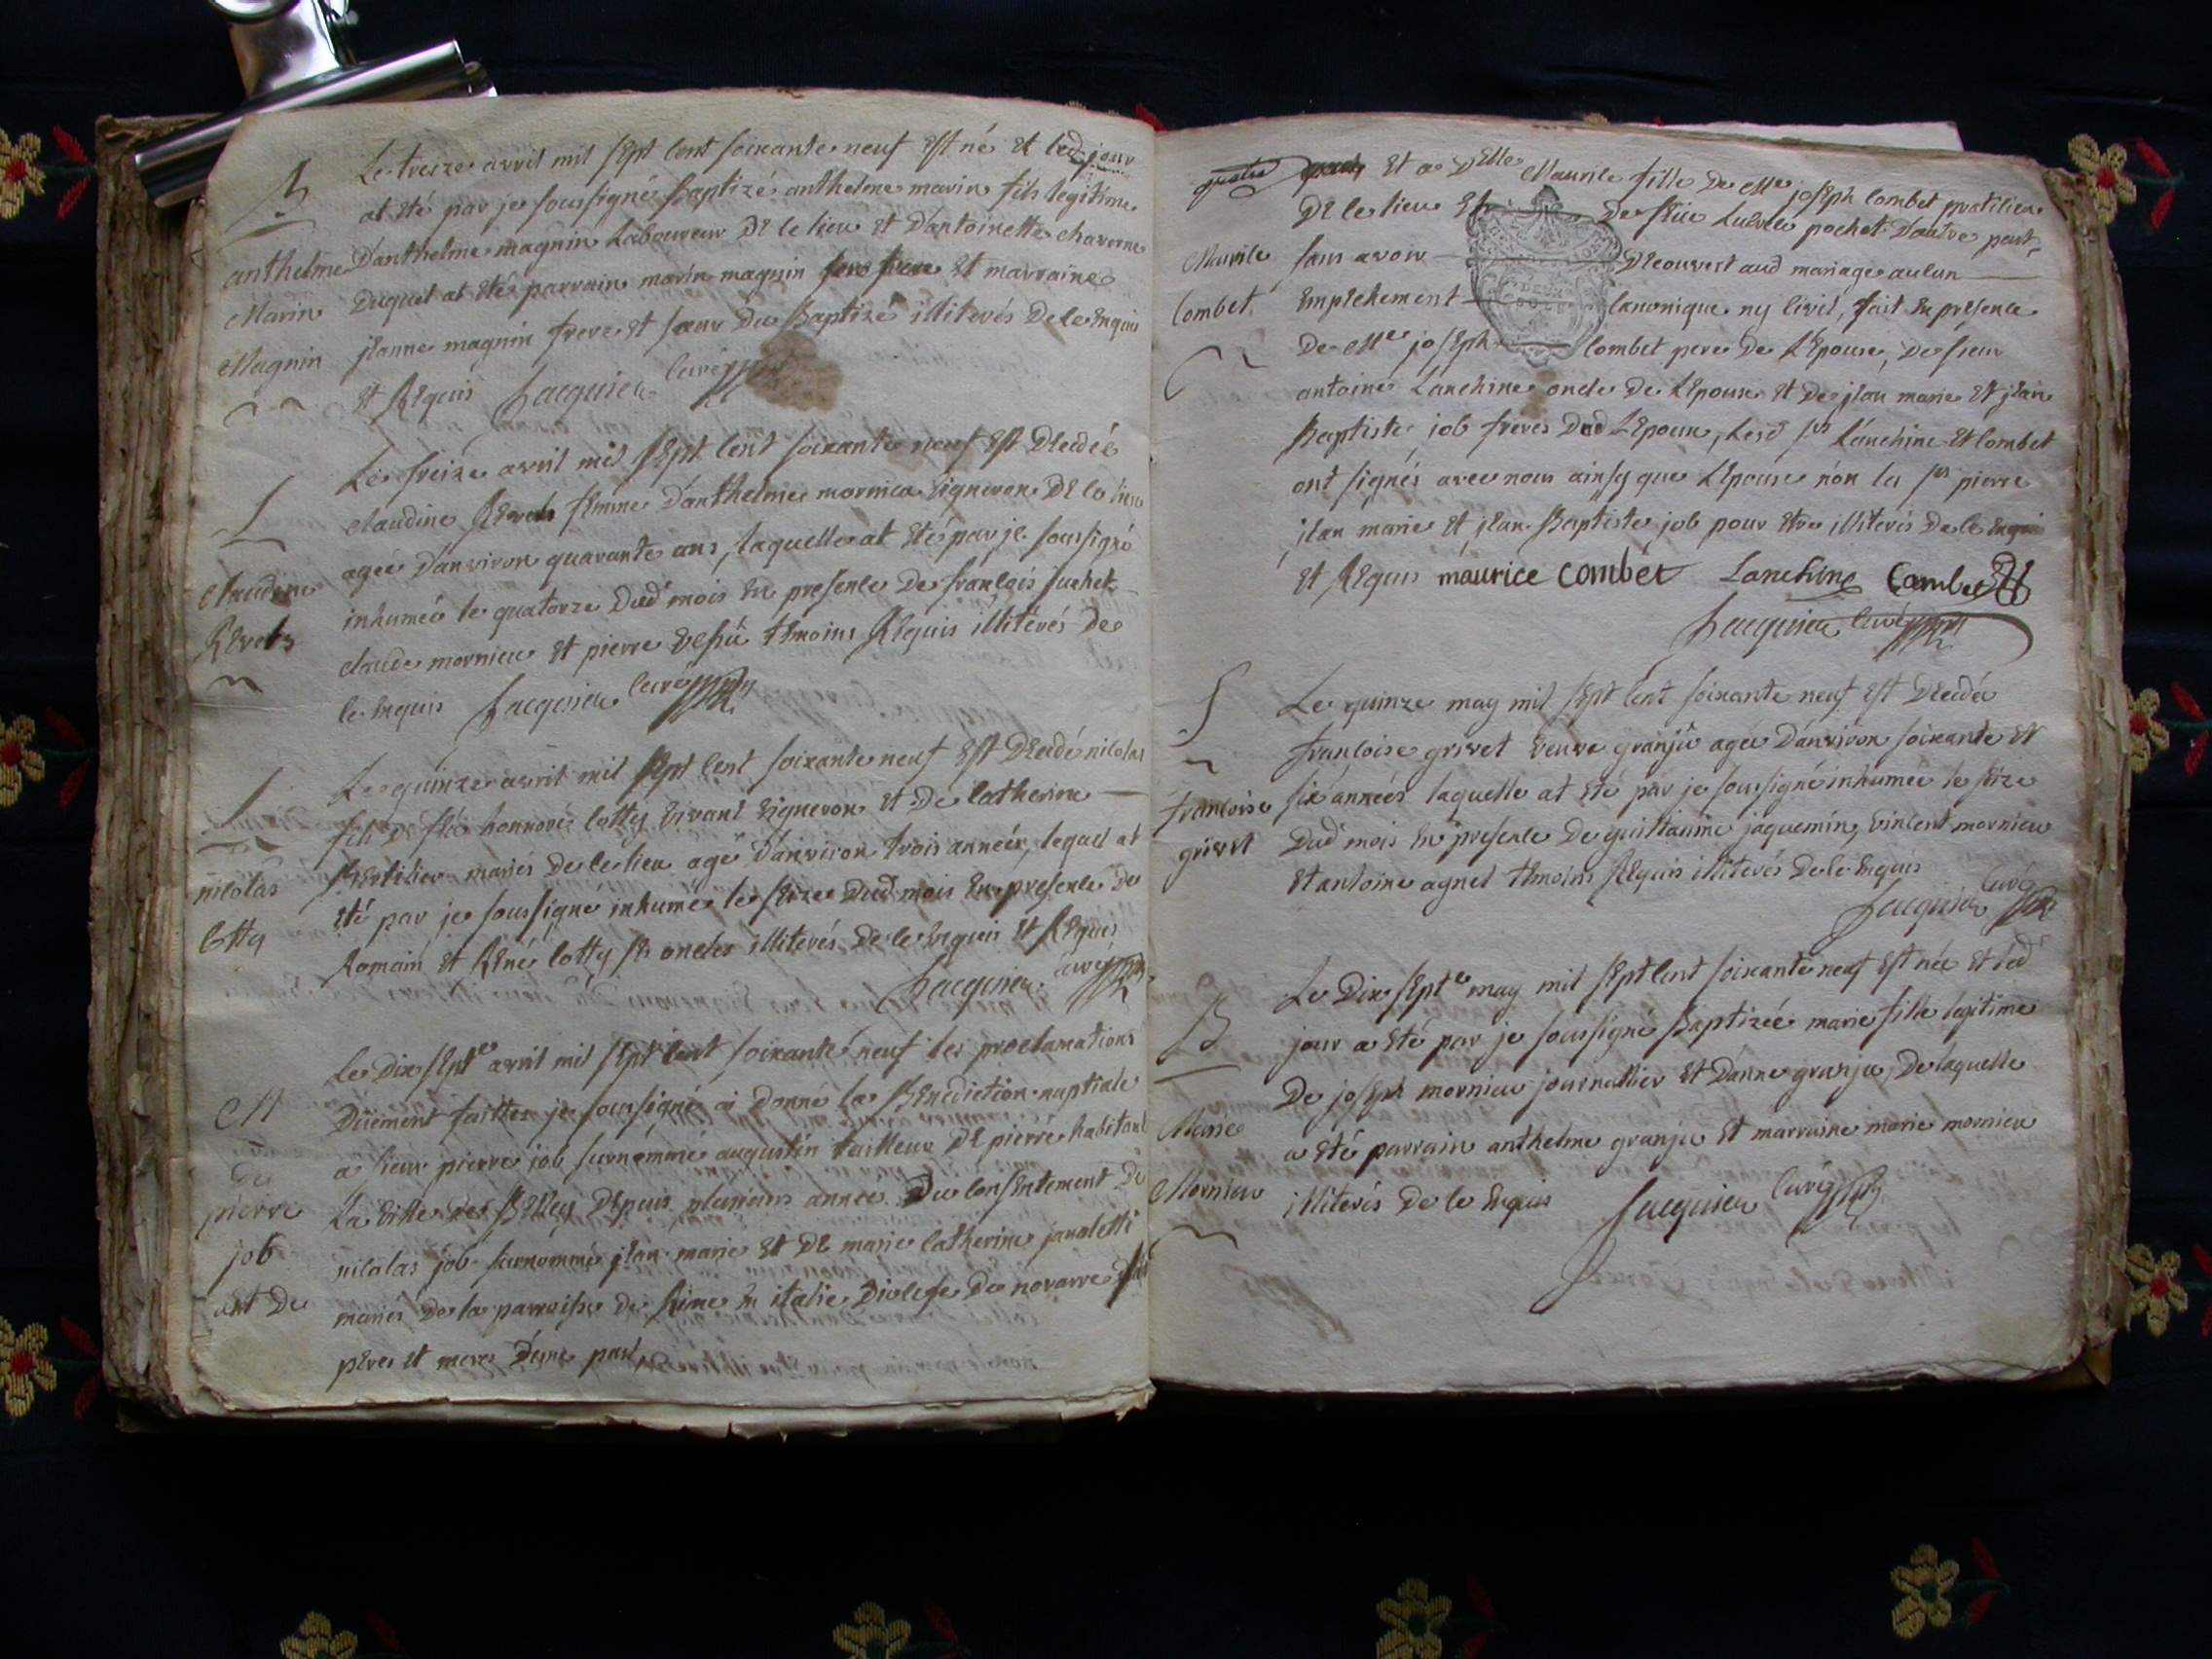 B
Le treize avril mil sept cent soixante neuf est né et led jour
at eté par je soussigné Baptizé anthelme marin fils legitime
anthelme
D'anthelme magnin Laboureur De ce lieu et D'antoinette
Marin
Duquel at eté parrain marin magnin et marraine
Magnin
jeanne magnin frere et soeur Du Baptizé illiterés De ce Enquis
et Requis Jacquier curé
L
Le treize avril mil sept cent soixante neuf est Decidée
claudine femme D'anthelme mornieu vigneron De ce lieu
agée D'anviron quarante ans, laquelle at eté par je soussigné
claudine
inhumée le quatorze Dud mois En presence De francois
claude mornieu et pierre temoins Requis illiterés De
ce Enquis Jacquier curé
Le quinze avril mil sept cent soixante neuf est Decidé nicolas
fils De feu honnoré cotty vivant vigneron et De catherine
nicolas
mariés De ce lieu agé D'anviron trois années, lequel at
cotty
eté par je soussigné inhumé le seize Dud mois En presence De
Romain et René cotty ses oncles illiterés De ce Enquis et Requis
Jacquier curé
M
Le Dix septe avril mil sept cent soixante neuf les proclamations
Duement faittes je soussigné ai donné la Benediction nuptiale
De
a sieur pierre job surnommé augustin tailleur De pierre habitant
pierre
La ville De Belley Depuis plusieurs année Du consentement De
job
nicolas job surnommé jean marie et De marie catherine
et De
mariés De la parroisse De Rime En italie Diocese De novarre
peres et meres D'une part,
et a Delle Maurice fille De Me joseph combet praticien
De ce lieu et De feue pochet D'autre part
Maurice
sans avoir Decouvert aud mariage aucun
combet
Empechement canonique ny civil, fait En presence
De Me joseph combet pere De L'Epouse, De sieur
antoine Lanchine oncle De L'Epouse et De jean marie et jean
Baptiste job freres Dud L'Epoux, Lesd srs Lanchine et combet
ont signés avec nous ainsy que L'Epouse non les srs pierre
jean marie et jean Baptiste job pour etre illiterés De ce Enquis
et Requis maurice combet Lanchine Combet
Jacquier curé
Le quinze may mil sept cent soixante neuf est Decidée
francoise grivet veuve granju agée D'anviron soixante et
francoise
six années laquelle at eté par je soussigné inhumée le seize
grivet
Dud mois En presence De guillaume jaquemin, vincent mornieu
et antoine agnel temoins Requis illiterés De ce Enquis
Jacquier curé
B
Le Dix septe may mil sept cent soixante neuf est née et led
jour a eté par je soussigné Baptizée marie fille legitime
De joseph mornieu journallier et D'anne granju, De laquelle
Marie
a eté parrain anthelme granju et marraine marie mornieu
Mornieu
illiterés De ce Enquis Jacquier curé